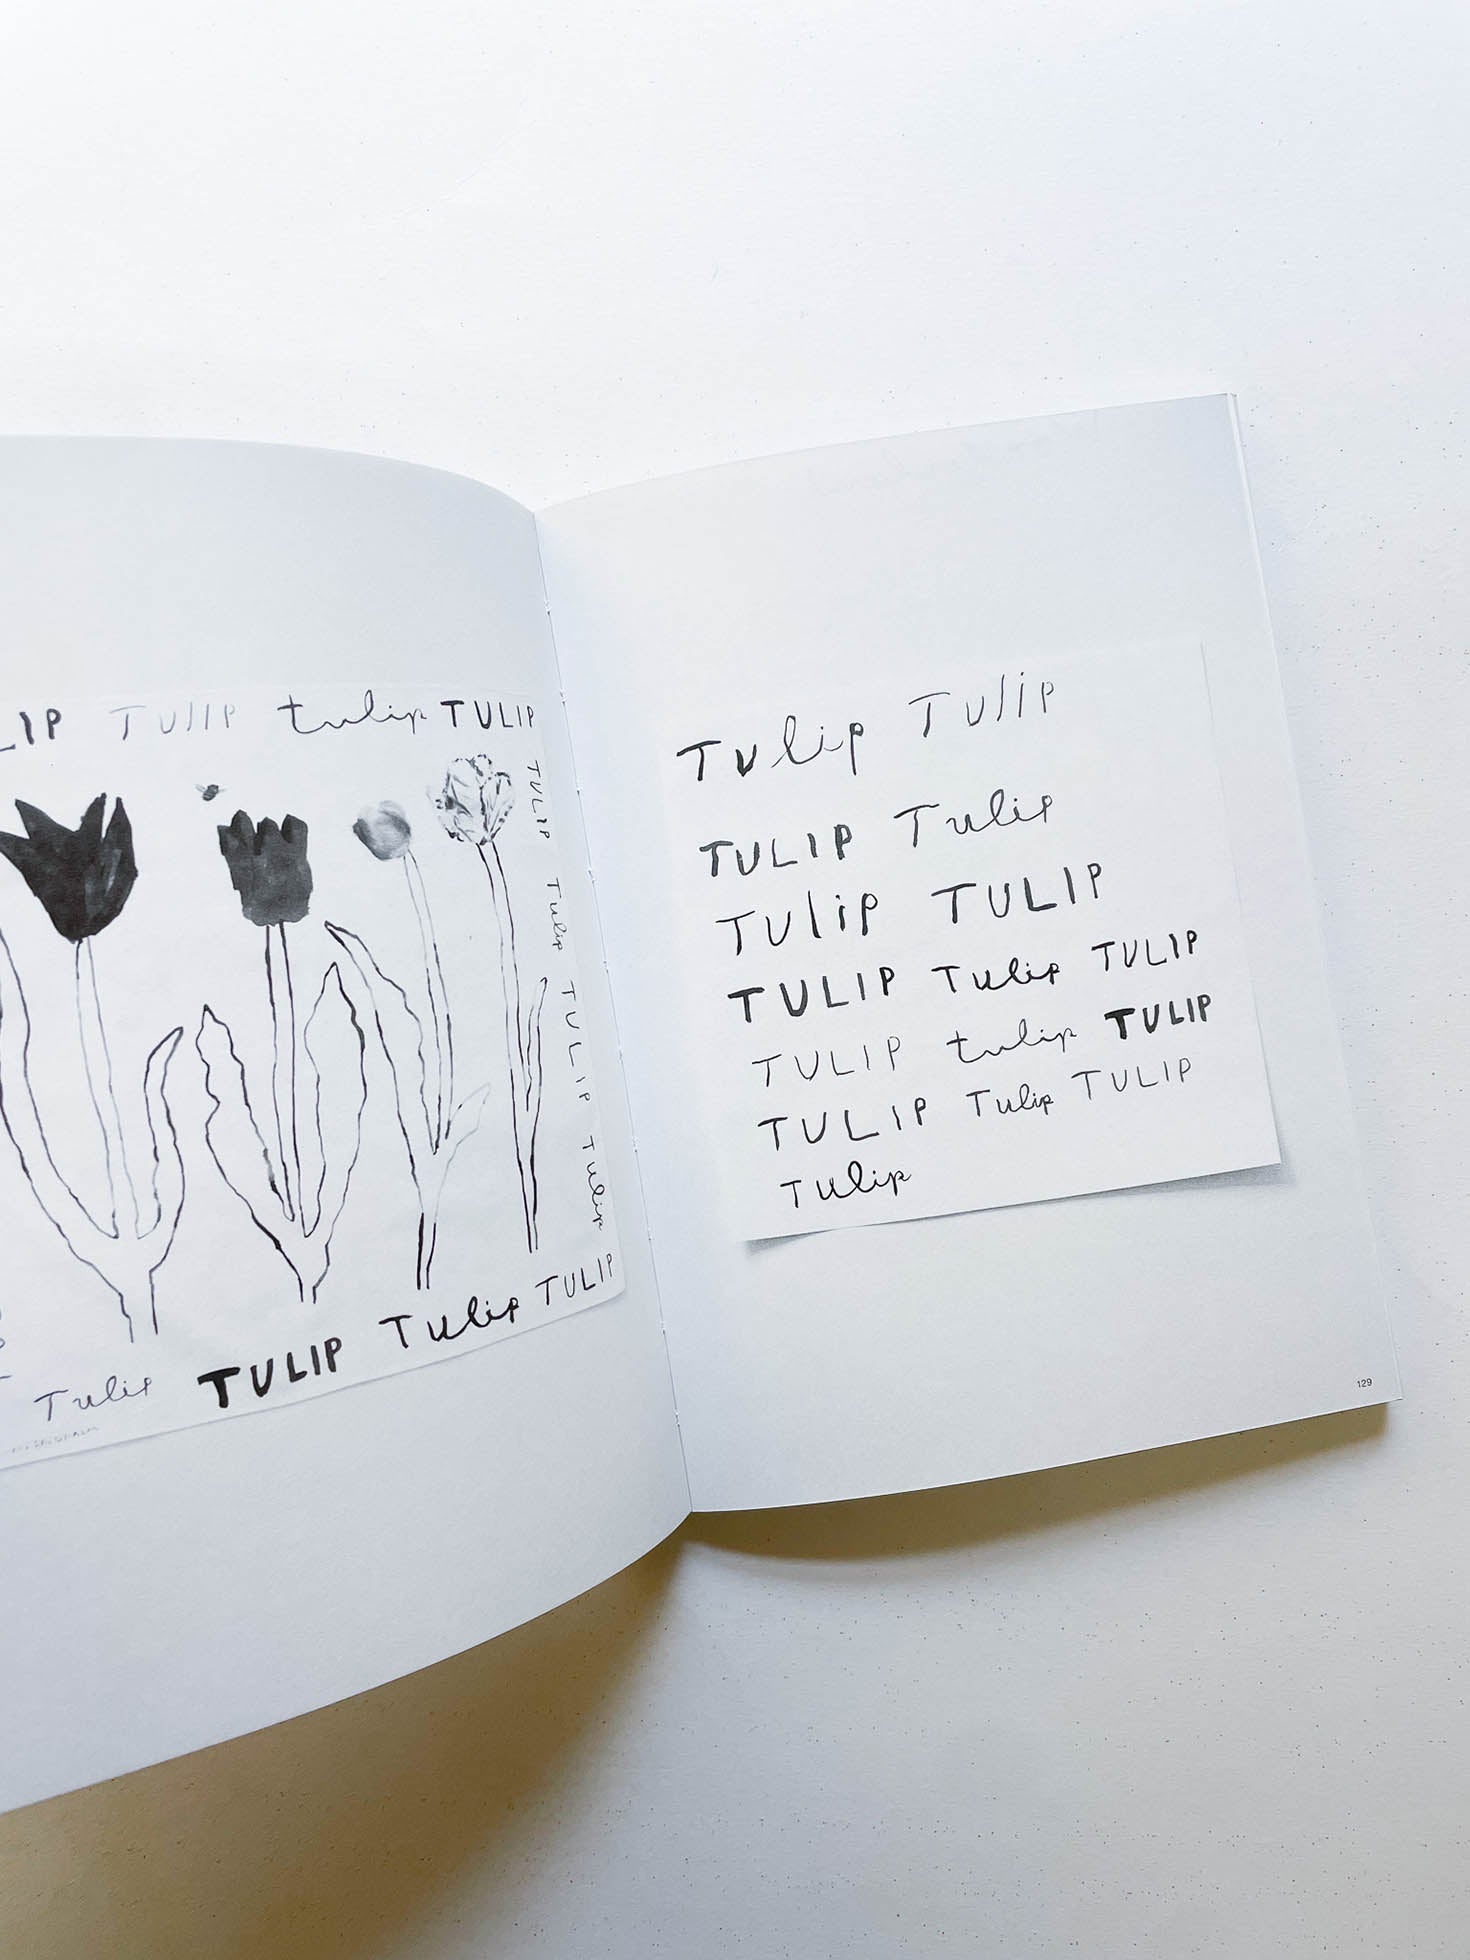 TULIP tulip TULIP
TULIP
Tulip
TULIP
Tulip
Tulip TULIP Tulip TULIP
Tulip Tulip
TULIP Tulip
Tulip TULIP
TULIP Tulip TULIP
TULIP tulip TULIP
TULIP Tulip TULIP
Tulip
129